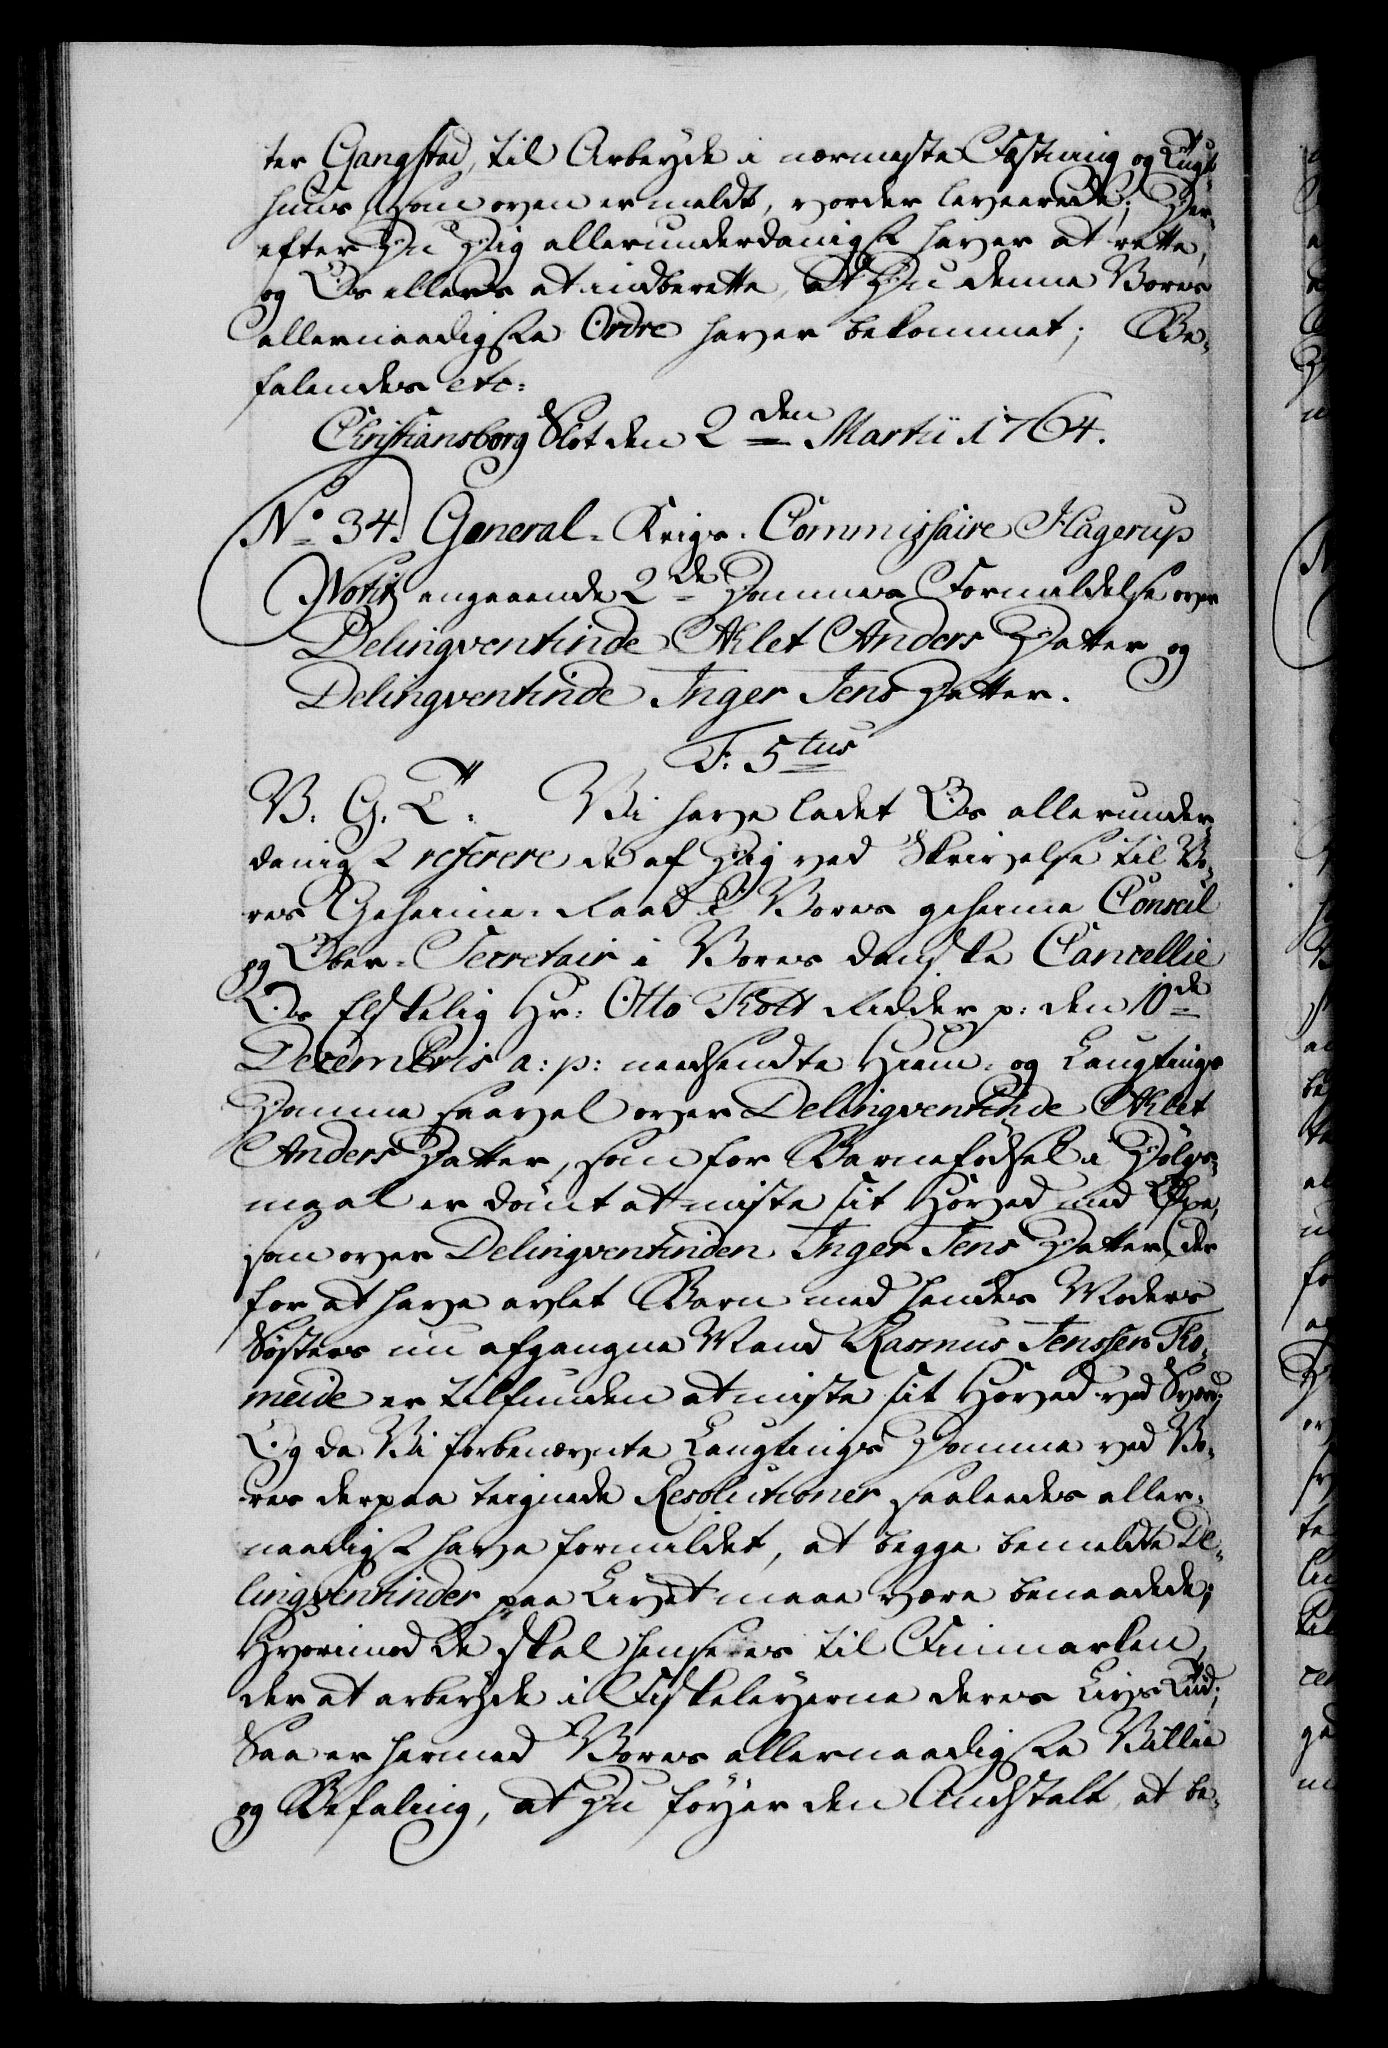 ter Gangstad, til Arbeyde i nærmeste Fæstning og Tugt-
huus, som oven er meldt, vorder leveerede; Der-
efter Du Dig allerunderdanigst haver at rette,
og Os ellers at indberette, at Du denne Vores
allernaadigste Ordre haver bekommet; Be-
falendes etc:
Christiansborg Slot den 2den Martii 1764.
No 34. General-Krigs-Commissaire Hagerup
Notit, angaaende 2de Dommes Formildelse over
Delinqventinde Aklet Anders Datter og
Delinqventinde Inger Jens Datter.
F: 5tus
V. G. T. Vi have ladet Os allerunder-
danigst referere de af Dig ved Skrivelse til Vo-
res Geheime-Raad i Vores geheime Conseil
og Ober-Secretair i Vores danske Cancellie
Os Elskelig Hr: Otto Thott Ridder p: den 10de
Decembris a: p: needsendte Hiem- og Laugtings
Domme saavel over Delinqventinde Aklet
Anders Datter, som for Barnefødsel i Dølgs-
maal er dømt at miste sit Hoved med Øxe,
som over Delinqventinden Inger Jens Datter, der
for at have avlet Barn med hendes Moders
Søsters nu afgangne Mand Rasmus Jenssen Tho-
meide er tilfunden at miste sit Hoved ved Sværd;
Og da Vi forbenævnte Laugtings Domme ved Vo-
res derpaa teignede Resolutioner saaledes aller-
naadigst have formildet, at begge bemeldte De-
linqventinder paa Livet maae være benaadede;
Hvorimod De skal hensees til Finmarken,
der at arbeyde i Fiskeleyerne deres Livs Tid;
Saa er hermed Vores allernaadigste Villie
og Befaling, at Du føyer den Andstalt, at be-